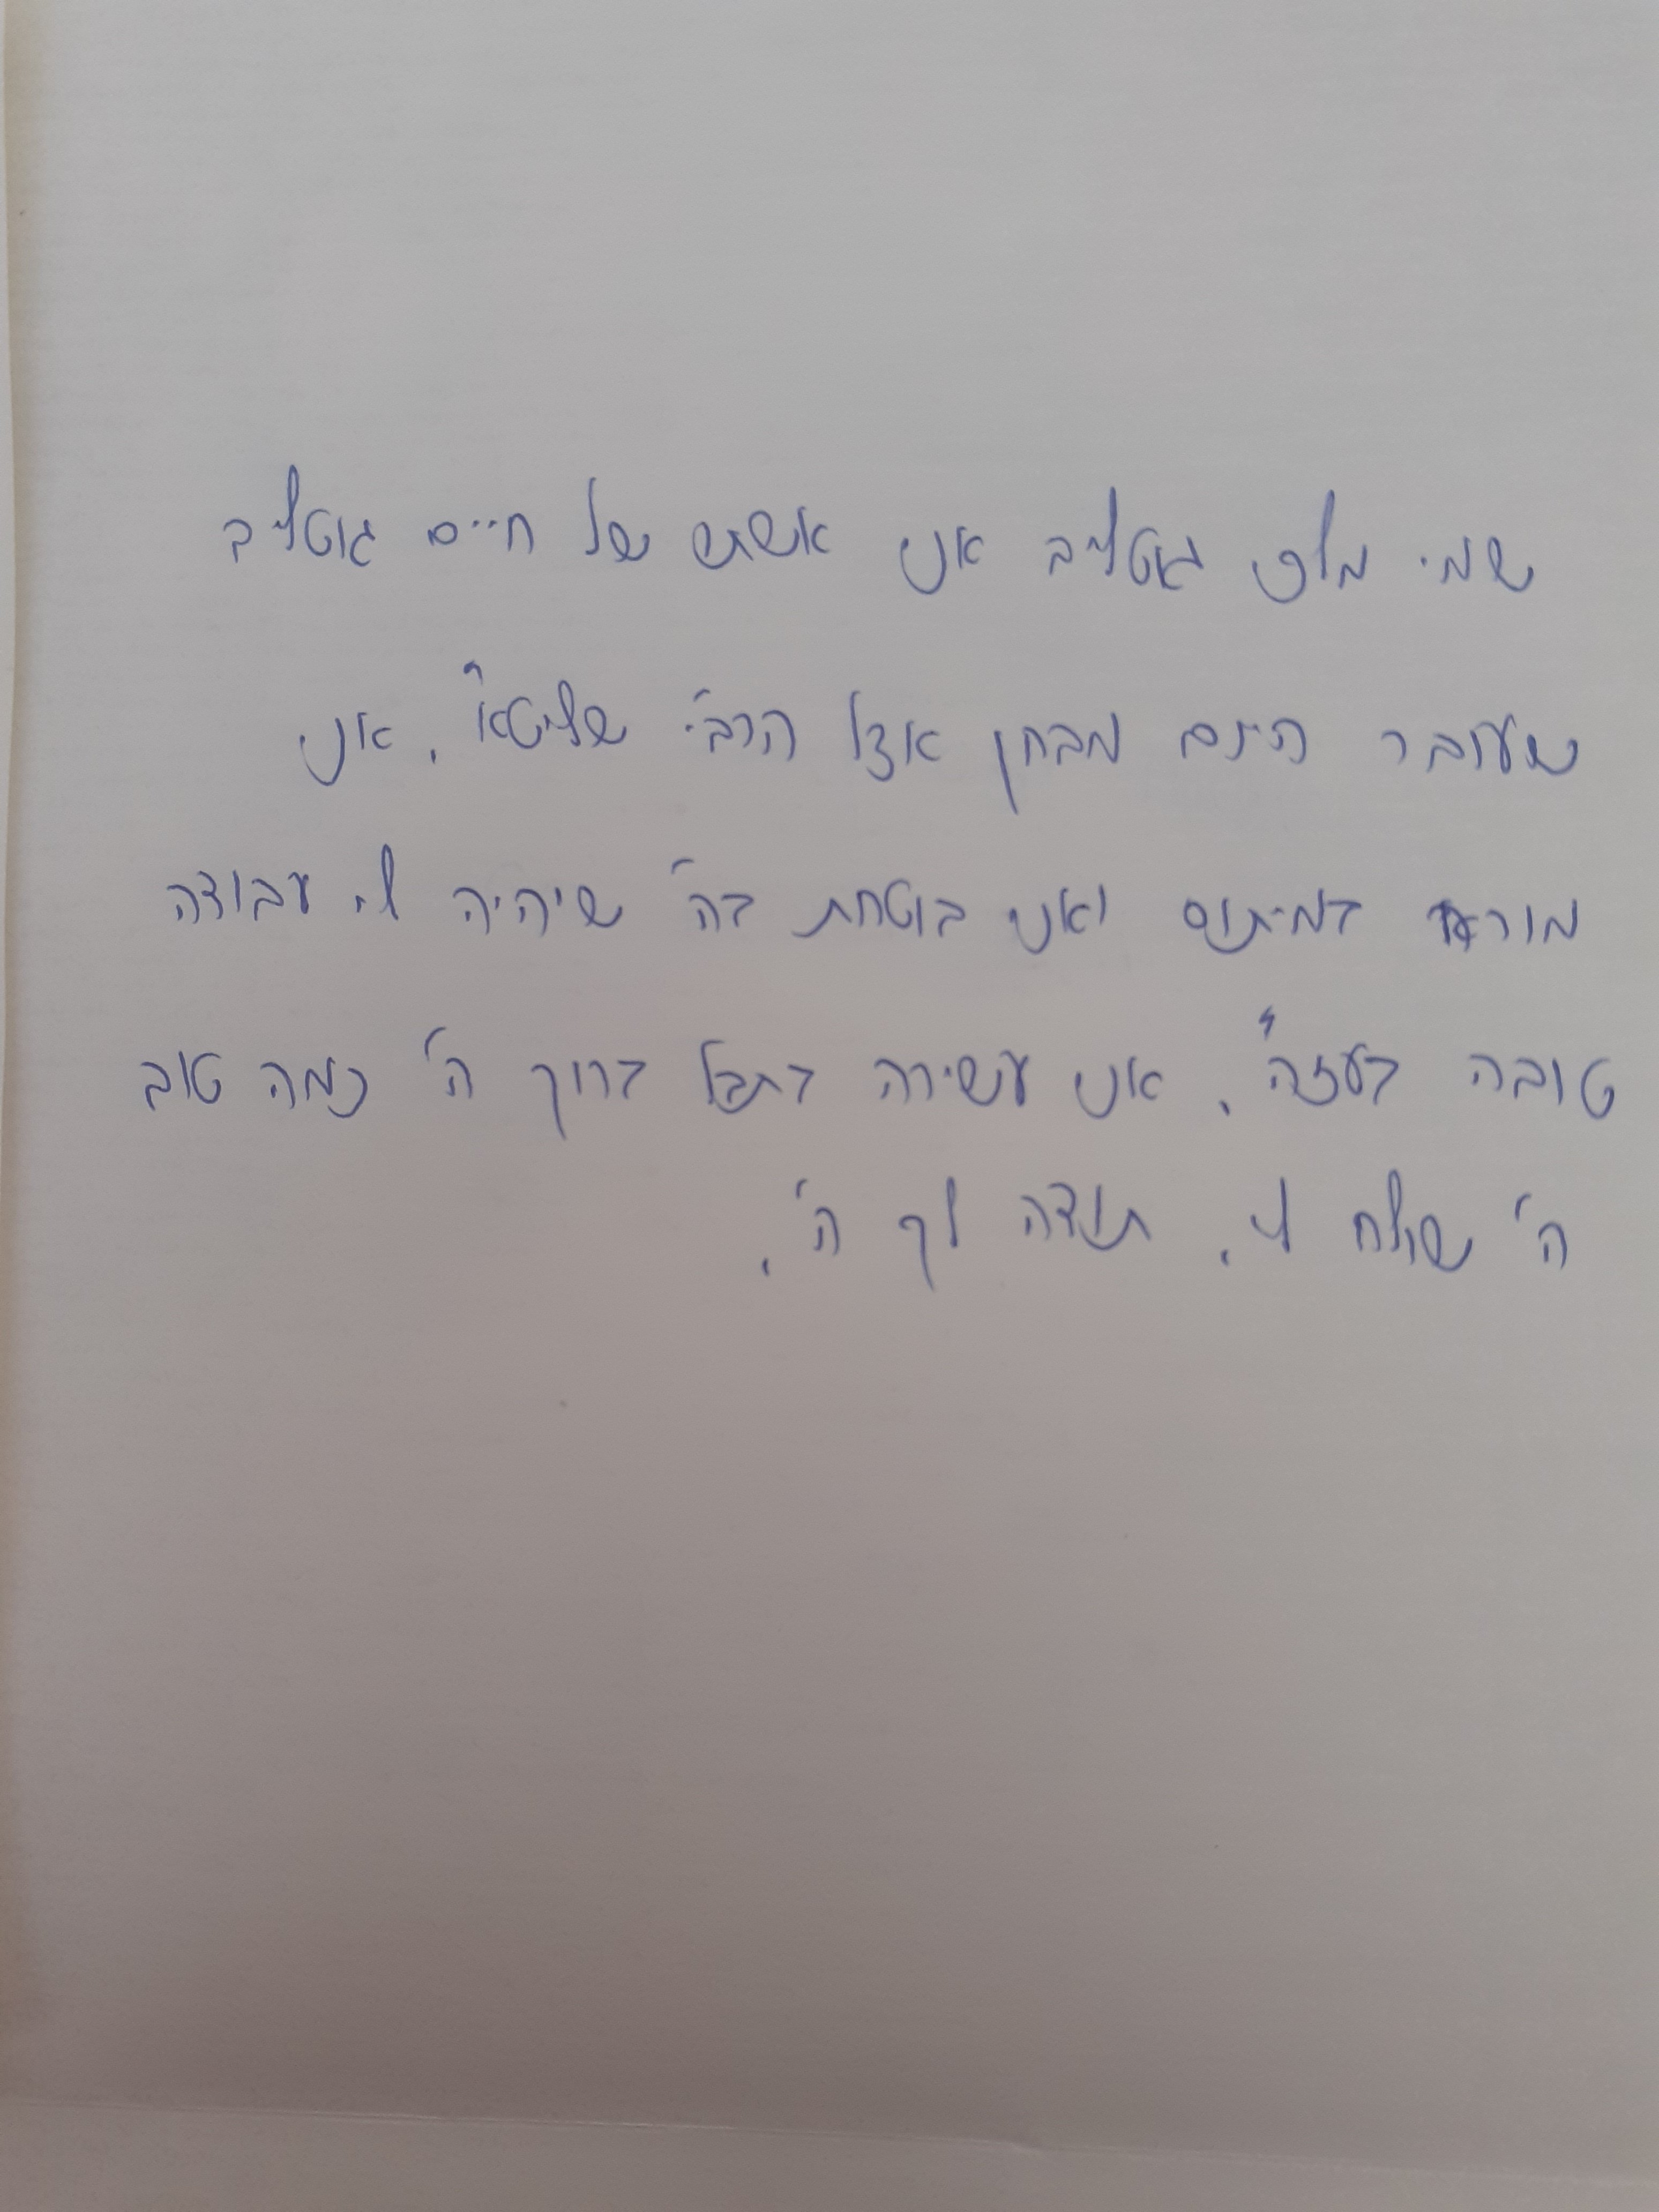 שמי מלי גוטליב אני אשתו של חיים גוטליב
שעובר היום מבחן אצל הרבי שליט"א. אני
מורה במיתוס ואני בוטחת בה' שיהיה לי עבודה
טובה בעזה"י. אני עשירה בתבל ברוך ה' כמה טוב
ה' שולח לי. תודה לך ה'.